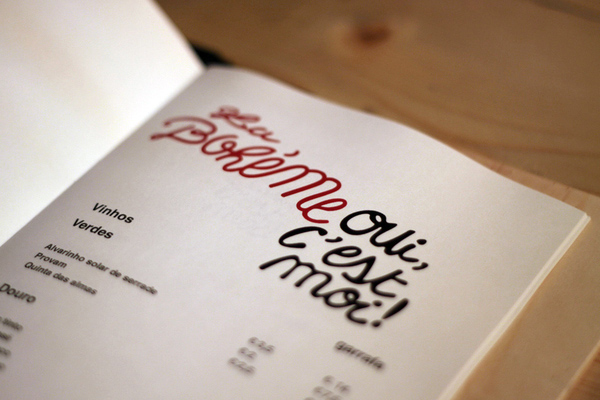 La
Bohéme
oui,
c'est
moi!
Vinhos
Verdes
Alvarinho solar de serrade
Provam
Quinta das almas
garrafa
Douro